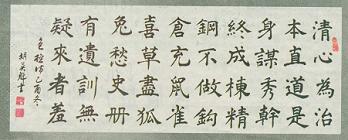 清心為治
本直道是
身謀秀幹
終成棟精
鋼不做鈎
倉充鼠雀
喜草盡狐
兔愁史册
有遺訓無
疑來者羞
包拯詩乙酉冬
胡 書